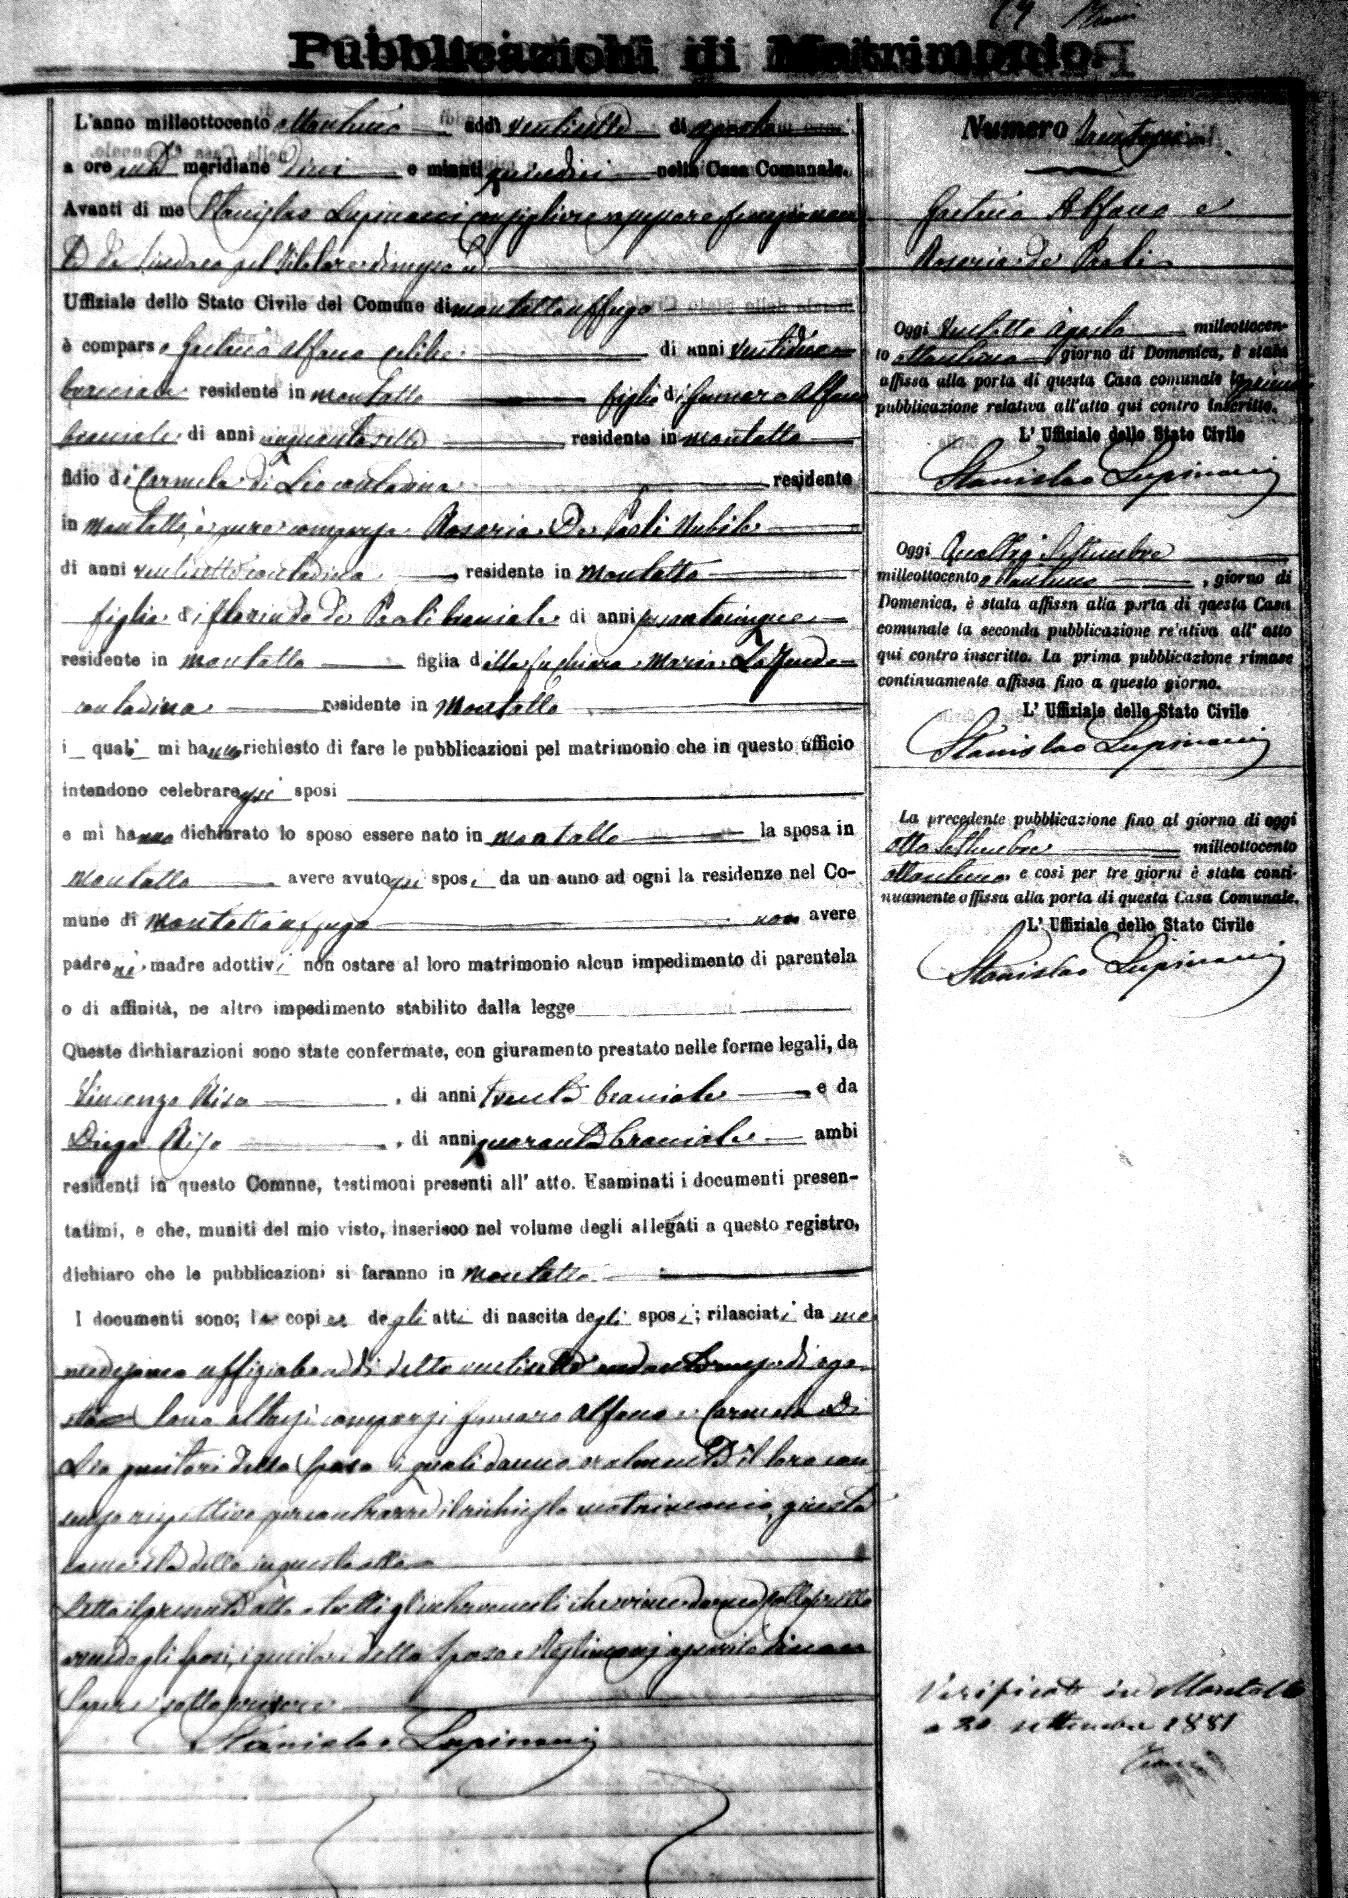 Pubblicazioni di Matrimonio.
L'anno milleottocento ottantuno addì ventisette di agosto
a ore meridiane dieci e minuti quindici nella Casa Comunale.
Avanti di me Stanislao Lupinacci consigliere
Uffiziale dello Stato Civile del Comune di montalto uffugo
è comparso Gaetano Alfano celibe di anni ventidue
residente in montalto figlio di Gennaro Alfano
braciale di anni cinquantasette residente in montalto
fidio di Carmela di Leo contadina residente
in montalto, è pure comparsa Rosaria De Paoli Nubile
di anni contadina residente in montalto
figlia di Florindo de Paoli braciale di anni
residente in montalto figlia della fu Maria
contadina residente in montalto
i quali mi hanno richiesto di fare le pubblicazioni pel matrimonio che in questo ufficio
intendono celebrare essi sposi
e mi hanno dichiarato lo sposo essere nato in montalto la sposa in
montalto avere avuto essi sposi da un anno ad ogni la residenze nel Co-
mune di montalto uffugo non avere
padre nè madre adottivi non ostare al loro matrimonio alcun impedimento di parentela
o di affinità, ne altro impedimento stabilito dalla legge
Queste dichiarazioni sono state confermate, con giuramento prestato nelle forme legali, da
Vincenzo Riso, di anni trenta braciale e da
Diego Riso, di anni quaranta braciale ambi
residenti in questo Comnne, testimoni presenti all' atto. Esaminati i documenti presen-
tatimi, e che, muniti del mio visto, inserisco nel volume degli allegati a questo registro,
dichiaro che le pubblicazioni si faranno in montalto
I documenti sono; le copie degli atti di nascita degli sposi; rilasciati da me
medesimo uffiziale addì detto ventisette andante mese di ago-
sto Sono altresì comparsi Gennaro Alfano e Carmela Di
Leo genitori dello sposo i quali danno oralmente il loro con
senso rispettivo per contrarre il richiesto matrimonio, giusta
come sta detto in questo atto
Letto il presente atto a tutti gl'intervenuti
degli sposi, i genitori dello sposo e
sapere sottoscrivere
Stanislao Lupinacci
Numero
Gaetano Alfano e
Rosaria de Paoli
Oggi Ventotto Agosto milleottocen-
to ottantuno, giorno di Domenica, è stata
affissa alla porta di questa Casa comunale la prima
pubblicazione relativa all'atto qui contro inscritto.
L' Uffiziale dello Stato Civile
Stanislao Lupinacci
Oggi Quattro Settembre
milleottocento ottantuno, giorno di
Domenica, è stata affissa alla porta di questa Casa
comunale la seconda pubblicazione relativa all' atto
qui contro inscritto. La prima pubblicazione rimase
continuamente affissa fino a questo giorno.
L' Uffiziale dello Stato Civile
Stanislao Lupinacci
La precedente pubblicazione fino al giorno di oggi
otto Settembre milleottocento
ottantuno, e così per tre giorni è stata conti-
nuamente affissa alla porta di questa Casa Comunale.
L' Uffiziale dello Stato Civile
Stanislao Lupinacci
Verificato in Montalto
a 20 settembre 1881